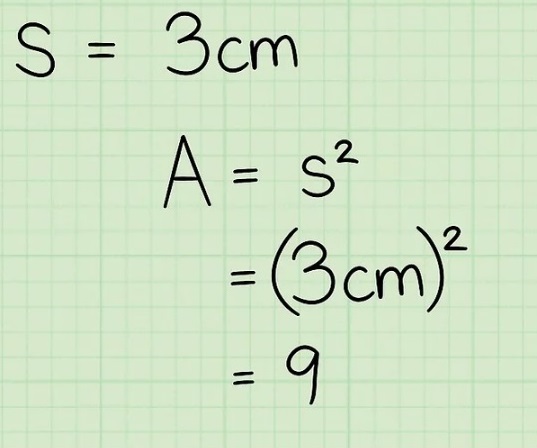 S = 3cm
A = s²
= (3cm)²
= 9